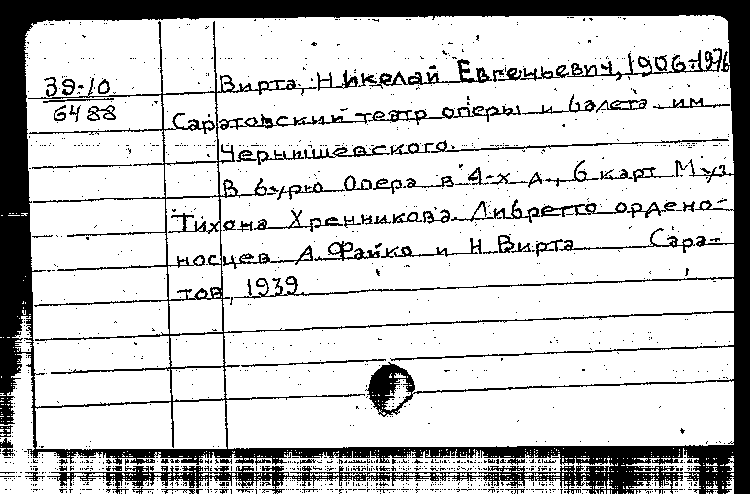 39-10
6488
Вирта, Николай Евгеньевич, 1906-1976
Саратовский театр оперы и балета им
Чернышевского.
В бурю Опера в 4-х д., 6 карт Муз
Тихона Хренникова. Либретто ордено-
носцев А. Файко и Н. Вирта Сара-
тов, 1939.